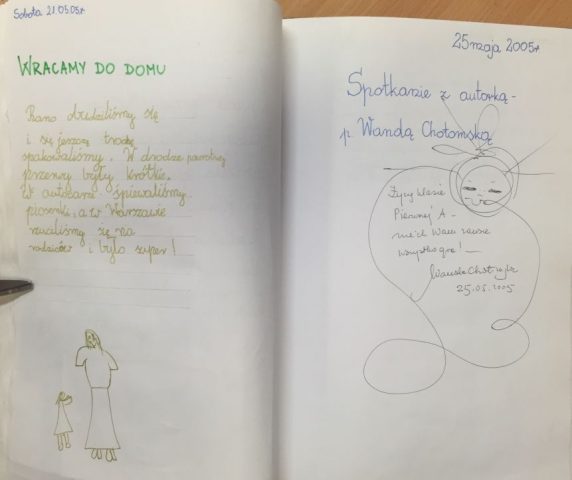 Sobota 21.05.05r.
WRACAMY DO DOMU
Rano obudziliśmy się
i się jeszcze trochę
spakowaliśmy. W drodze powrotnej
przerwy były krótkie.
W autokarze śpiewaliśmy
piosenki, a w Warszawie
rzuciliśmy się na
rodziców i było super!
25 maja 2005r
Spotkanie z autorką -
p. Wandą Chotomską
Klasie
Pierwszej A -
niech Wam zawsze
wszystko gra! -
Wanda Chotomska
25.05.2005